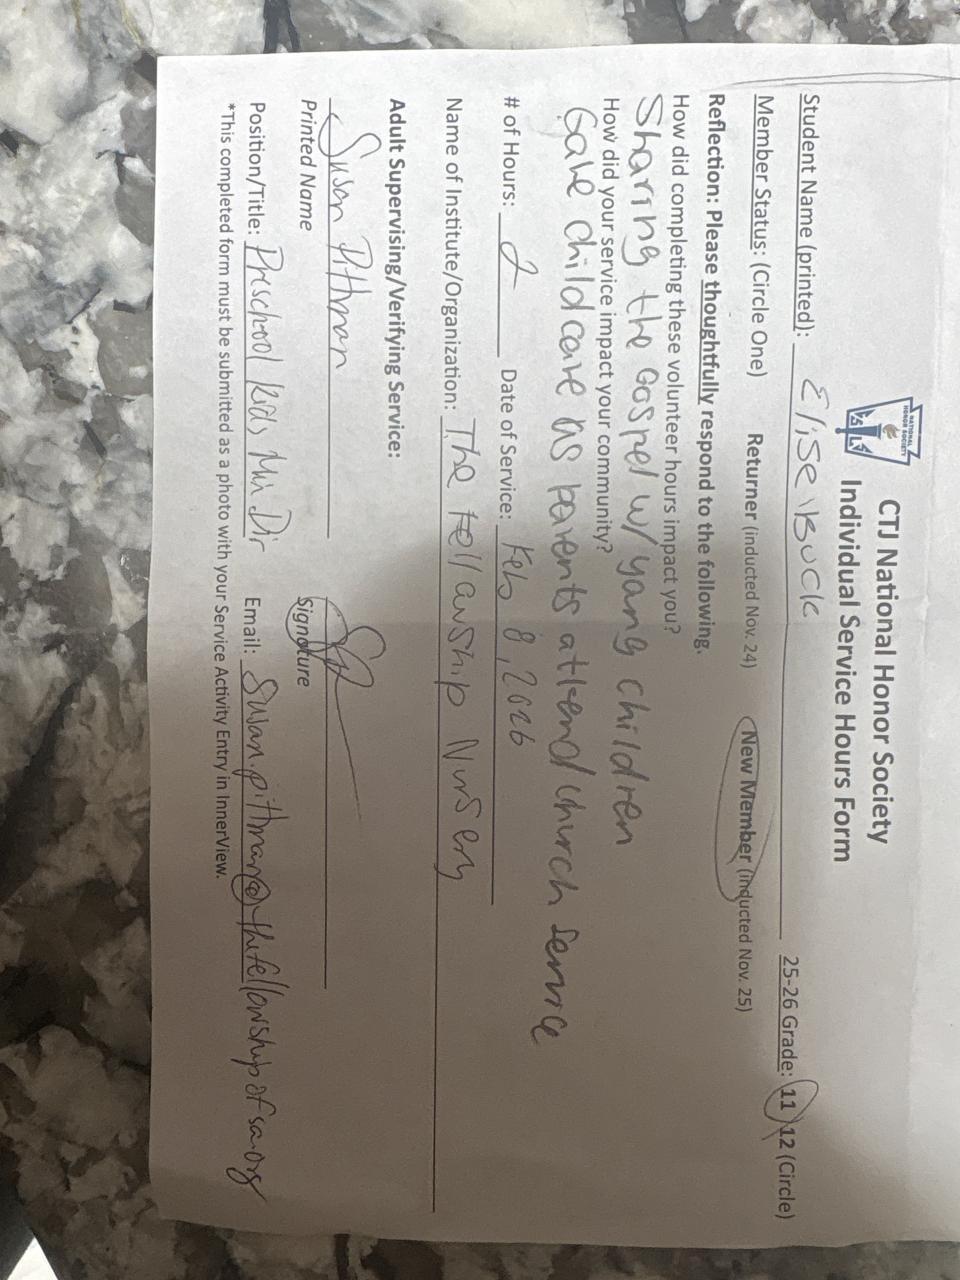 NATIONAL HONOR SOCIETY
CTJ National Honor Society
Individual Service Hours Form
Student Name (printted): Elise Buck 25-26 Grade: 11 12 (Circle)
Member Status: (Circle One) Returner (inducted Nov. 24) New Member (inducted Nov. 25)
Reflection: Please thoughtfully respond to the following.
How did completing these volunteer hours impact you?
Sharing the Gospel w/ yang children
How did your service impact your community?
Gave childcare as parents attend church service
# of Hours: 2 Date of Service: Feb 8, 2026
Name of Institute/Organization: The Fellowship Nursery
Adult Supervising/Verifying Service:
Susan Pittman
Printed Name Signature
Position/Title: Preschool Kids Min Dir Email: susan.pittman@thefellowshipofsa.org
*This completed form must be submitted as a photo with your Service Activity Entry in InnerView.